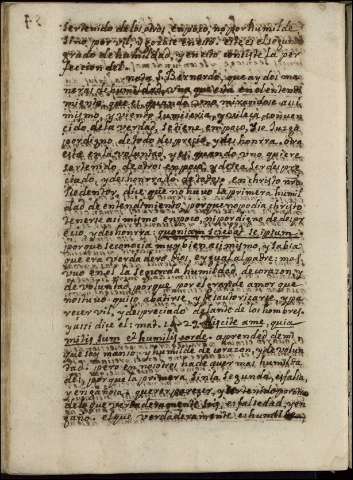 ser tenido de los otros en poco, no por humilde
sino por vil, y goçase en esto. este es el segundo
grado de humildad, y en esto consiste la per
feccion del
nota S. Bernardo, que ay dos ma
neras de humildad, una que esta en el entendi
miento, que es, quando uno mirandose a si
mismo, y viendo su miseria, y vileça, convenci
do de la verdad, se tiene en poco, y se juzga
por digno de todo desprecio, y deshonrra, otra
esta en la voluntad, y es, quando uno quiere
ser tenido de otros en poco, y desea ser despre
ciado, y deshonrrado de todos. en christo nro
Redentor, dice que no huvo la primera humil
dad de entendimiento, porque no podia christo
tenerse a si mismo en poco, ni por digno de despre
cio, y deshonrra: quoniam sciebat se ipsum
porque se conocia muy bien a si mismo, y sabia
que era verdadero Dios, e ygual al padre: mas
uvo en el la segunda humildad de coraçon, y
de voluntad, porque por el grande amor que
nos tuvo quiso abatirse, y desautoriçarse, y pa
recer vil, y despreciado delante de los hombres.
y assi dice el: mat. 11. 29. discite a me, quia
mitis sum et humilis corde. aprended de mi
que soy manso, y humilde de coraçon, y de volun
tad: pero en nosotros ha de aver mas humilda
des, porque la primera sin la segunda, es falsa,
y engañosa: querer parecer, y ser tenido por otro
de lo que verdaderamente sois, es falsedad, y en
gaño. el que verdaderamente es humilde